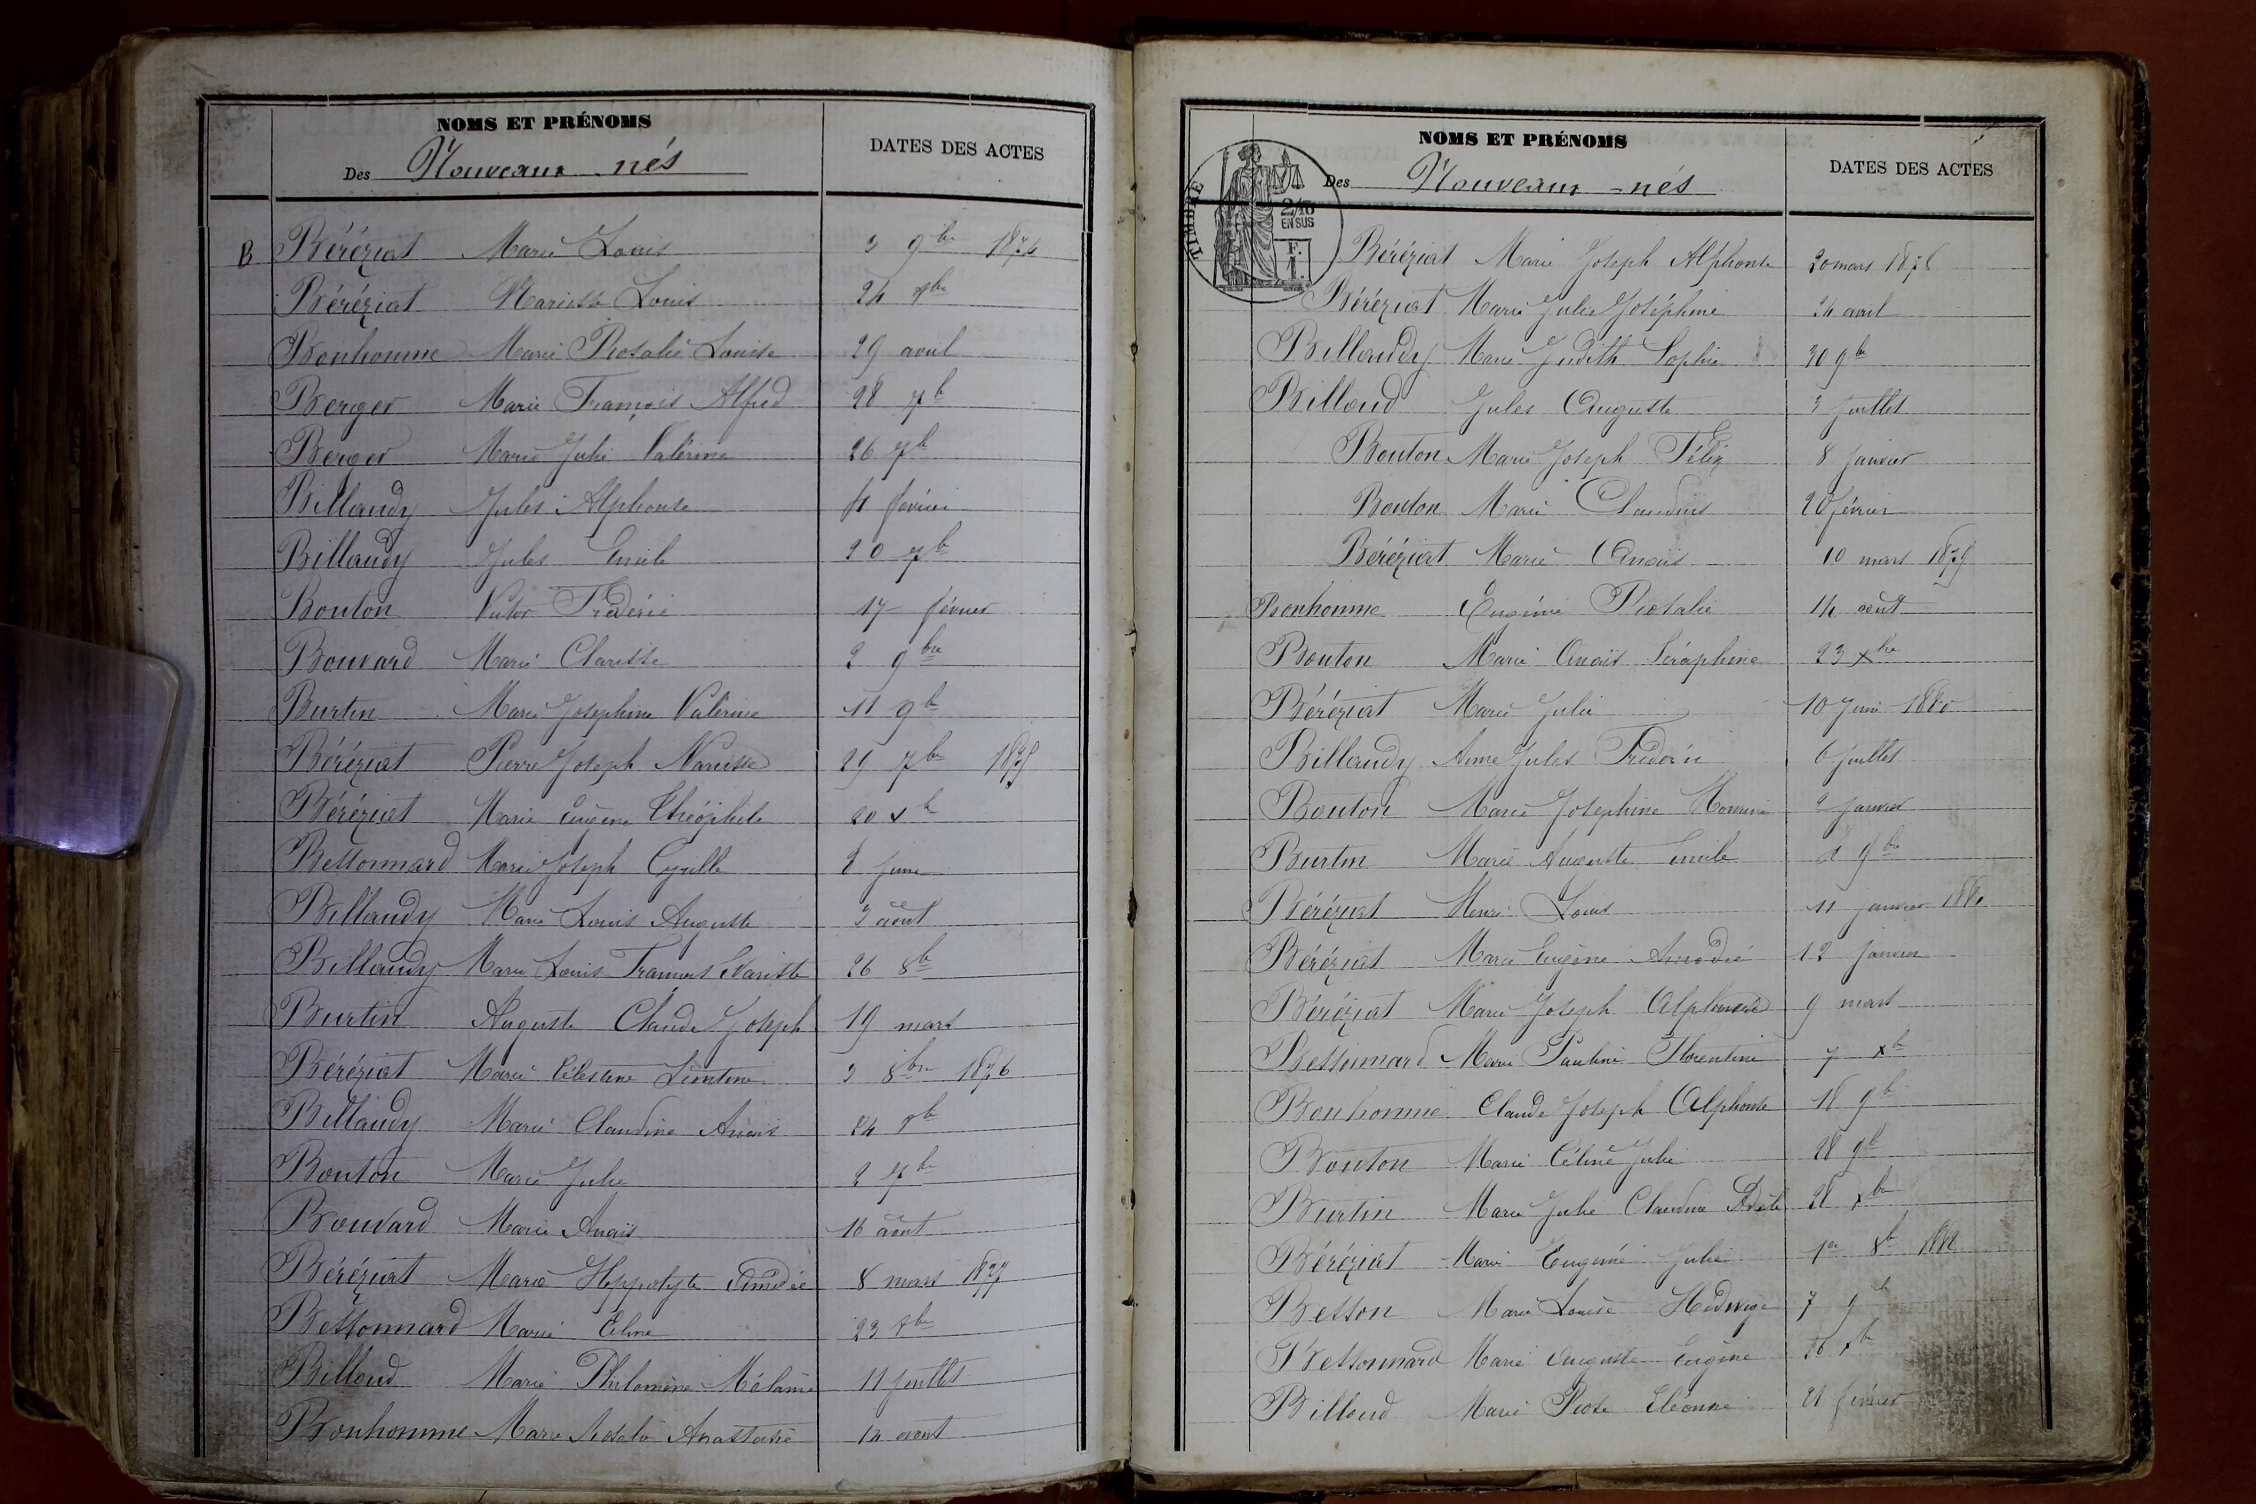 NOMS ET PRÉNOMS
Des Nouveaux-nés
DATES DES ACTES
B Béréziat Marie Louis 3 9bre 1874
Béréziat Narcisse Louis 24 xbre
Bonhomme Marie Rosalie Louise 29 avril
Berger Marie François Alfred 28 7b
Berger Marie Julie Valérine 26 7b
Billaudy Jules Alphonse 4 février
Billaudy Jules Emile 20 7b
Bouton Victor Frédéric 17 février
Bouvard Marie Clarisse 2 9bre
Burtin Marie Joséphine Valérine 11 9b
Béréziat Pierre Joseph Narcisse 29 7bre 1875
Béréziat Marie Eugène Théophile 20 xb
Bessonnard Marie Joseph Cyrille 2 juin
Billaudy Marie Louis Auguste 3 août
Billaudy Marie Louis François Evariste 26 8b
Burtin Auguste Claude Joseph 19 mars
Béréziat Marie Célestine Léontine 3 8bre 1876
Billaudy Marie Claudine Anais 24 9b
Bouton Marie Julie 2 7b
Bouvard Marie Anais 16 août
Béréziat Marie Hippolyte Amédée 8 mars 1877
Bessonnard Marie Céline 23 xbre
Billoud Marie Philomène Mélanie 11 juillet
Bonhomme Marie Rosalie Anastasie 14 août
TIMBRE
2/10
EN SUS
F.
1.
NOMS ET PRÉNOMS
Des Nouveaux-nés
DATES DES ACTES
Béréziat Marie Joseph Alphonse 20 mars 1878
Béréziat Marie Julie Joséphine 24 avril
Billaudy Marie Judith Sophie 30 9b
Billoud Jules Auguste 3 juillet
Bouton Marie Joseph Félix 8 janvier
Bouton Marie Claudius 20 février
Béréziat Marie Anais 10 mars 1879
Bonhomme Eugénie Rosalie 14 août
Bouton Marie Anais Séraphine 23 xbre
Béréziat Marie Julie 10 juin 1880
Billaudy Aimé Jules Frédéric 6 juillet
Bouton Marie Joséphine 2 janvier
Burtin Marie Auguste Emile 1 9bre
Béréziat Henri Louis 11 janvier 1881
Béréziat Marie Eugène Amédée 12 janvier
Béréziat Marie Joseph Alphonse 9 mars
Bessonnard Marie Pauline Florentine 7 xb
Bonhomme Claude Joseph Alphonse 18 9b
Bouton Marie Céline Julie 28 9b
Burtin Marie Julie Claudine Adèle 28 xbre
Béréziat Marie Eugénie Julie 1er 8b 1882
Besson Marie Louise Hedwige 7 9b
Bessonnard Marie Auguste Eugène 26 xb
Billoud Marie Rose Eléonne 21 février